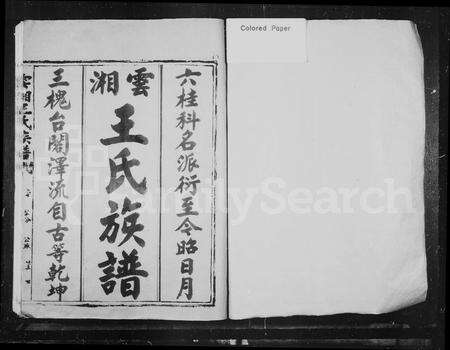 Colored Paper
六桂科名派衍至今昭日月
雲湘
王氏族譜
三槐台閣澤流自古等乾坤
FamilySearch